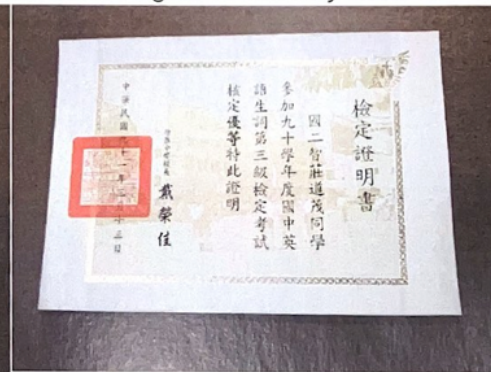 檢定證明書
國二智莊道茂同學
參加九十學年度國中英
語生詞第三級檢定考試
核定優等特此證明
戴榮佳
中華民國九十一年